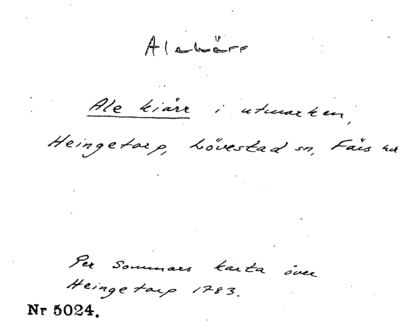 Alekärr
Ale kiärr i utmarken,
Heingetorp, Lövestad sn, Färs hd
Per Sommars karta över
Heingetorp 1783.
Nr 5024.